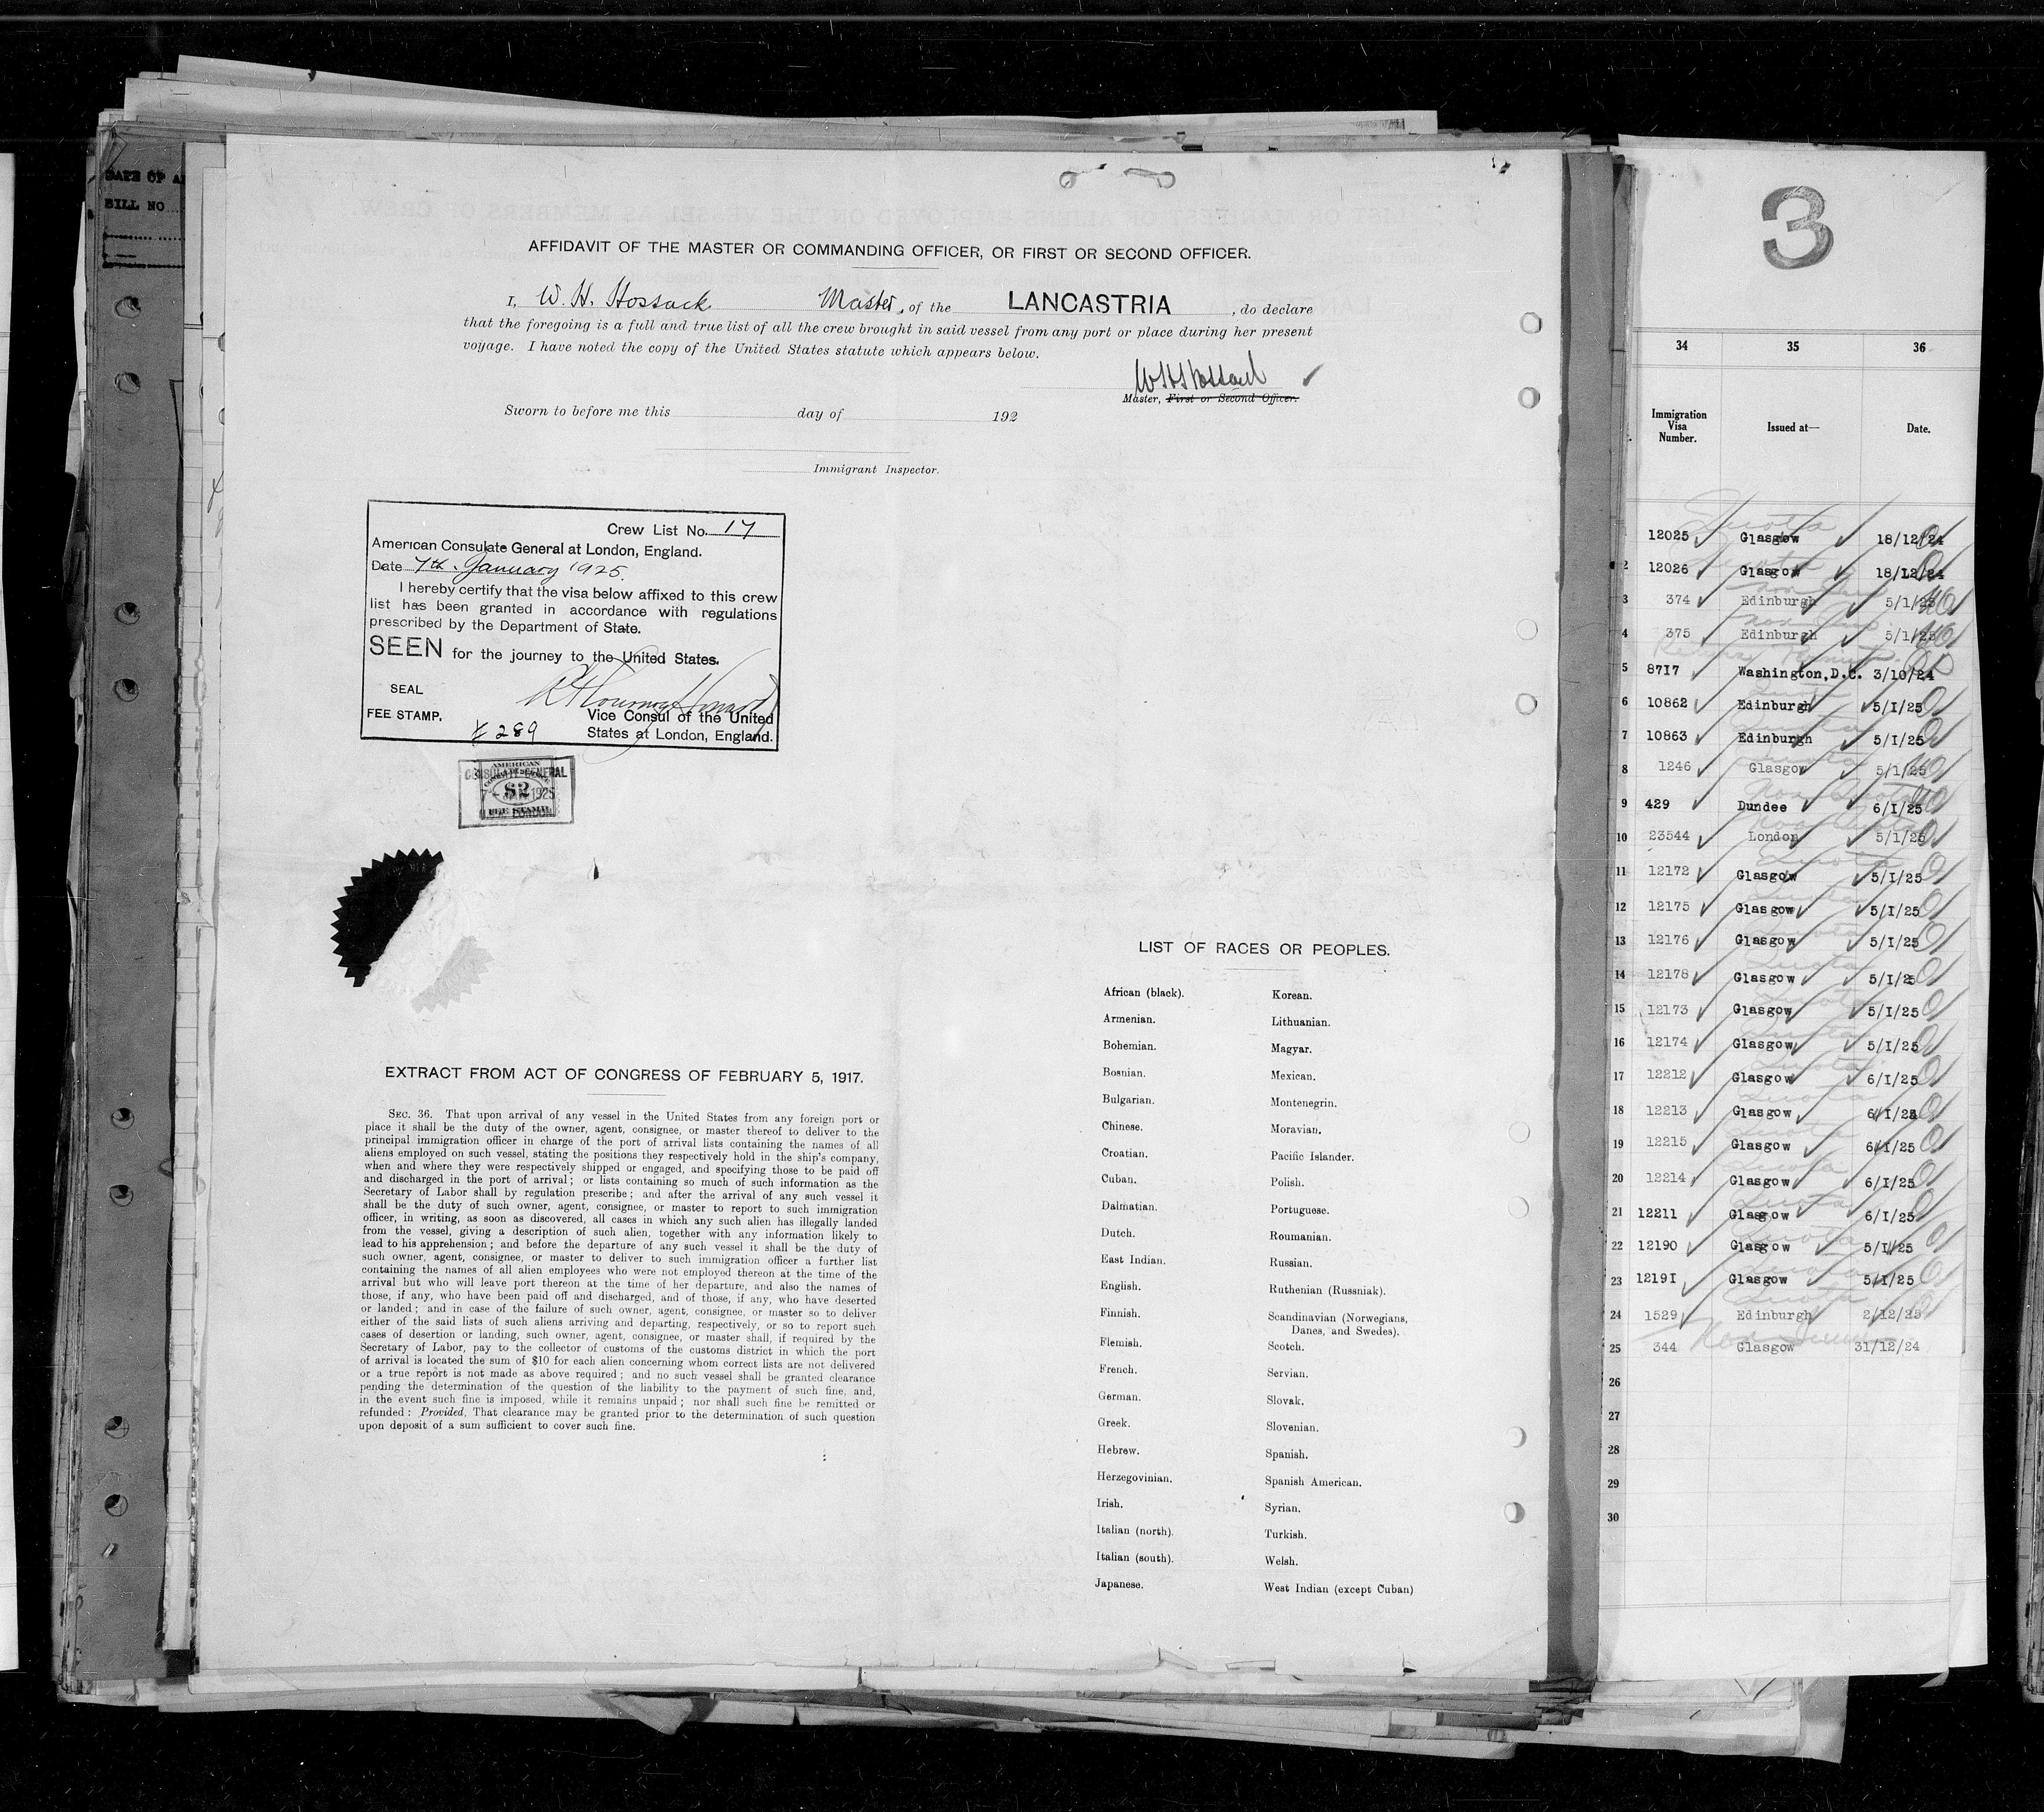 DATE OF A
BILL NO
AFFIDAVIT OF THE MASTER OR COMMANDING OFFICER, OR FIRST OR SECOND OFFICER.
I, W. H. Hossack Master, of the LANCASTRIA, do declare
that the foregoing is a full and true list of all the crew brought in said vessel from any port or place during her present
voyage. I have noted the copy of the United States statute which appears below.
W H Hossack
Master, First or Second Officer.
Sworn to before me this day of 192
Immigrant Inspector.
Crew List No. 17
American Consulate General at London, England.
Date 7th. January 1925.
I hereby certify that the visa below affixed to this crew
list has been granted in accordance with regulations
prescribed by the Department of State.
SEEN for the journey to the United States.
SEAL
FEE STAMP.
Vice Consul of the United
289 States at London, England.
AMERICAN
CONSULATE GENERAL
$2
1925
FEE STAMP
LONDON
EXTRACT FROM ACT OF CONGRESS OF FEBRUARY 5, 1917.
SEC. 36. That upon arrival of any vessel in the United States from any foreign port or
place it shall be the duty of the owner, agent, consignee, or master thereof to deliver to the
principal immigration officer in charge of the port of arrival lists containing the names of all
aliens employed on such vessel, stating the positions they respectively hold in the ship's company,
when and where they were respectively shipped or engaged, and specifying those to be paid off
and discharged in the port of arrival; or lists containing so much of such information as the
Secretary of Labor shall by regulation prescribe; and after the arrival of any such vessel it
shall be the duty of such owner, agent, consignee, or master to report to such immigration
officer, in writing, as soon as discovered, all cases in which any such alien has illegally landed
from the vessel, giving a description of such alien, together with any information likely to
lead to his apprehension; and before the departure of any such vessel it shall be the duty of
such owner, agent, consignee, or master to deliver to such immigration officer a further list
containing the names of all alien employees who were not employed thereon at the time of the
arrival but who will leave port thereon at the time of her departure, and also the names of
those, if any, who have been paid off and discharged, and of those, if any, who have deserted
or landed; and in case of the failure of such owner, agent, consignee, or master so to deliver
either of the said lists of such aliens arriving and departing, respectively, or so to report such
cases of desertion or landing, such owner, agent, consignee, or master shall, if required by the
Secretary of Labor, pay to the collector of customs of the customs district in which the port
of arrival is located the sum of $10 for each alien concerning whom correct lists are not delivered
or a true report is not made as above required; and no such vessel shall be granted clearance
pending the determination of the question of the liability to the payment of such fine, and,
in the event such fine is imposed, while it remains unpaid; nor shall such fine be remitted or
refunded: Provided, That clearance may be granted prior to the determination of such question
upon deposit of a sum sufficient to cover such fine.
LIST OF RACES OR PEOPLES.
African (black). Korean.
Armenian. Lithuanian.
Bohemian. Magyar.
Bosnian. Mexican.
Bulgarian. Montenegrin.
Chinese. Moravian.
Croatian. Pacific Islander.
Cuban. Polish.
Dalmatian. Portuguese.
Dutch. Roumanian.
East Indian. Russian.
English. Ruthenian (Russniak).
Finnish. Scandinavian (Norwegians,
Danes, and Swedes).
Flemish. Scotch.
French. Servian.
German. Slovak.
Greek. Slovenian.
Hebrew. Spanish.
Herzegovinian. Spanish American.
Irish. Syrian.
Italian (north). Turkish.
Italian (south). Welsh.
Japanese. West Indian (except Cuban)
3
34 35 36
Immigration
Visa
Number.
Issued at—
Date.
12025 Glasgow 18/12/24
2 12026 Glasgow 18/12/24
3 374 Edinburgh 5/1/25
4 375 Edinburgh 5/1/25
Return Permit
5 8717 Washington, D.C. 3/10/24
6 10862 Edinburgh 5/I/25
7 10863 Edinburgh 5/I/25
8 1246 Glasgow 5/1/25
9 429 Dundee 6/I/25
10 23544 London 5/1/25
11 12172 Glasgow 5/I/25
12 12175 Glasgow 5/I/25
13 12176 Glasgow 5/I/25
14 12178 Glasgow 5/I/25
15 12173 Glasgow 5/I/25
16 12174 Glasgow 5/I/25
17 12212 Glasgow 6/I/25
18 12213 Glasgow 6/I/25
19 12215 Glasgow 6/I/25
20 12214 Glasgow 6/I/25
21 12211 Glasgow 6/I/25
22 12190 Glasgow 5/I/25
23 1219I Glasgow 5/I/25
24 1529 Edinburgh 2/12/25
25 344 Glasgow 31/12/24
26
27
28
29
30